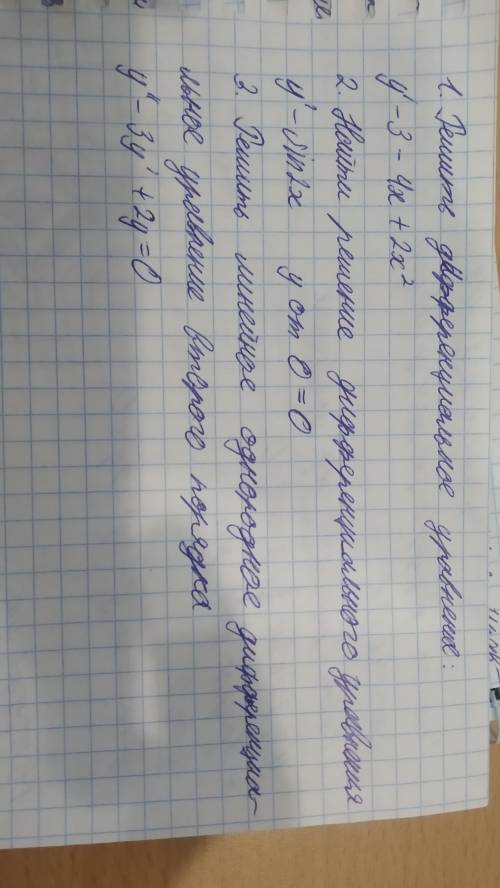 1. Решить дифференциальное уравнение:
y' - 3 - 4x + 2x²
2. Найти решение дифференциального уравнения
y' - sin2x y от 0 = 0
3. Решить линейное однородное дифференциа-
льное уравнение второго порядка
y" - 3y' + 2y = 0